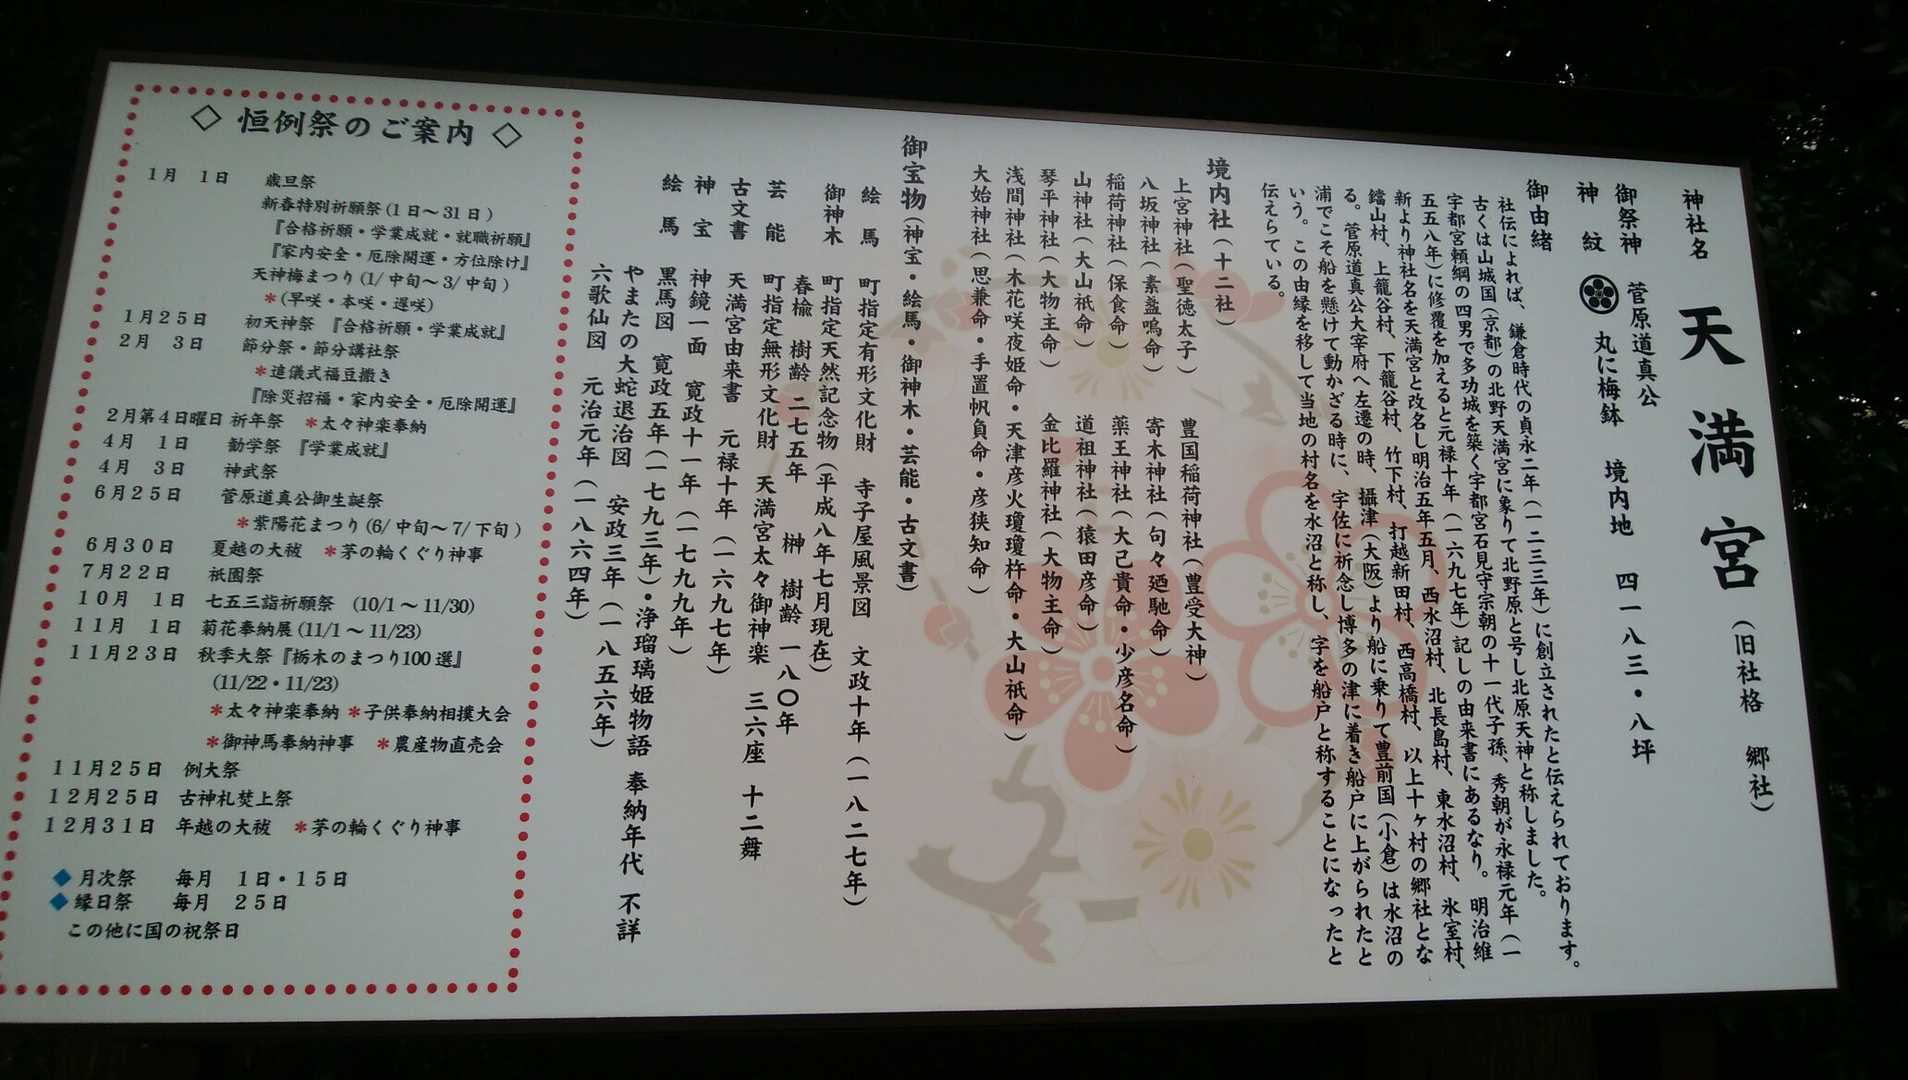 神社名 天満宮（旧社格 郷社）
御祭神 菅原道真公
神紋 丸に梅鉢 境内地 四一八三・八坪
御由緒
社伝によれば、鎌倉時代の貞永二年（一二三三年）に創立されたと伝えられております。
古くは山城国（京都）の北野天満宮に象りて北野原と号し北原天神と称しました。
宇都宮頼綱の四男で多功城を築く宇都宮石見守宗朝の十一代子孫、秀朝が永禄元年（一
五五八年）に修覆を加えると元禄十年（一六九七年）記しの由来書にあるなり。明治維
新より神社名を天満宮と改名し明治五年五月、西水沼村、北長島村、東水沼村、氷室村、
鐺山村、上籠谷村、下籠谷村、竹下村、打越新田村、西高橋村、以上十ヶ村の郷社とな
る。菅原道真公大宰府へ左遷の時、攝津（大阪）より船に乗りて豊前国（小倉）は水沼の
浦でこそ船を懸けて動かざる時に、宇佐に祈念し博多の津に着き船戸に上がられたと
いう。この由縁を移して当地の村名を水沼と称し、字を船戸と称することになったと
伝えらている。
境内社（十二社）
上宮神社（聖徳太子） 豊国稲荷神社（豊受大神）
八坂神社（素盞嗚命） 寄木神社（句々廼馳命）
稲荷神社（保食命） 薬王神社（大己貴命・少彦名命）
山神社（大山祇命） 道祖神社（猿田彦命）
琴平神社（大物主命） 金比羅神社（大物主命）
浅間神社（木花咲夜姫命・天津彦火瓊瓊杵命・大山祇命）
大始神社（思兼命・手置帆負命・彦狭知命）
御宝物（神宝・絵馬・御神木・芸能・古文書）
絵馬 町指定有形文化財 寺子屋風景図 文政十年（一八二七年）
御神木 町指定天然記念物（平成八年七月現在）
春楡 樹齢 二七五年 榊 樹齢 一八〇年
芸能 町指定無形文化財 天満宮太々御神楽 三六座 十二舞
古文書 天満宮由来書 元禄十年（一六九七年）
神宝 神鏡一面 寛政十一年（一七九九年）
絵馬 黒馬図 寛政五年（一七九三年）・浄瑠璃姫物語 奉納年代 不詳
やまたの大蛇退治図 安政三年（一八五六年）
六歌仙図 元治元年（一八六四年）
◇ 恒例祭のご案内 ◇
1月 1日 歳旦祭
新春特別祈願祭(1日～31日)
『合格祈願・学業成就・就職祈願』
『家内安全・厄除開運・方位除け』
天神梅まつり(1/中旬～3/中旬)
*(早咲・本咲・遅咲)
1月25日 初天神祭 『合格祈願・学業成就』
2月 3日 節分祭・節分講社祭
*追儀式福豆撒き
『除災招福・家内安全・厄除開運』
2月第4日曜日 祈年祭 *太々神楽奉納
4月 1日 勧学祭 『学業成就』
4月 3日 神武祭
6月25日 菅原道真公御生誕祭
*紫陽花まつり(6/中旬～7/下旬)
6月30日 夏越の大祓 *茅の輪くぐり神事
7月22日 祇園祭
10月 1日 七五三詣祈願祭 (10/1～11/30)
11月 1日 菊花奉納展(11/1～11/23)
11月23日 秋季大祭『栃木のまつり100選』
(11/22・11/23)
*太々神楽奉納 *子供奉納相撲大会
*御神馬奉納神事 *農産物直売会
11月25日 例大祭
12月25日 古神札焚上祭
12月31日 年越の大祓 *茅の輪くぐり神事
◆月次祭 毎月 1日・15日
◆縁日祭 毎月 25日
この他に国の祝祭日